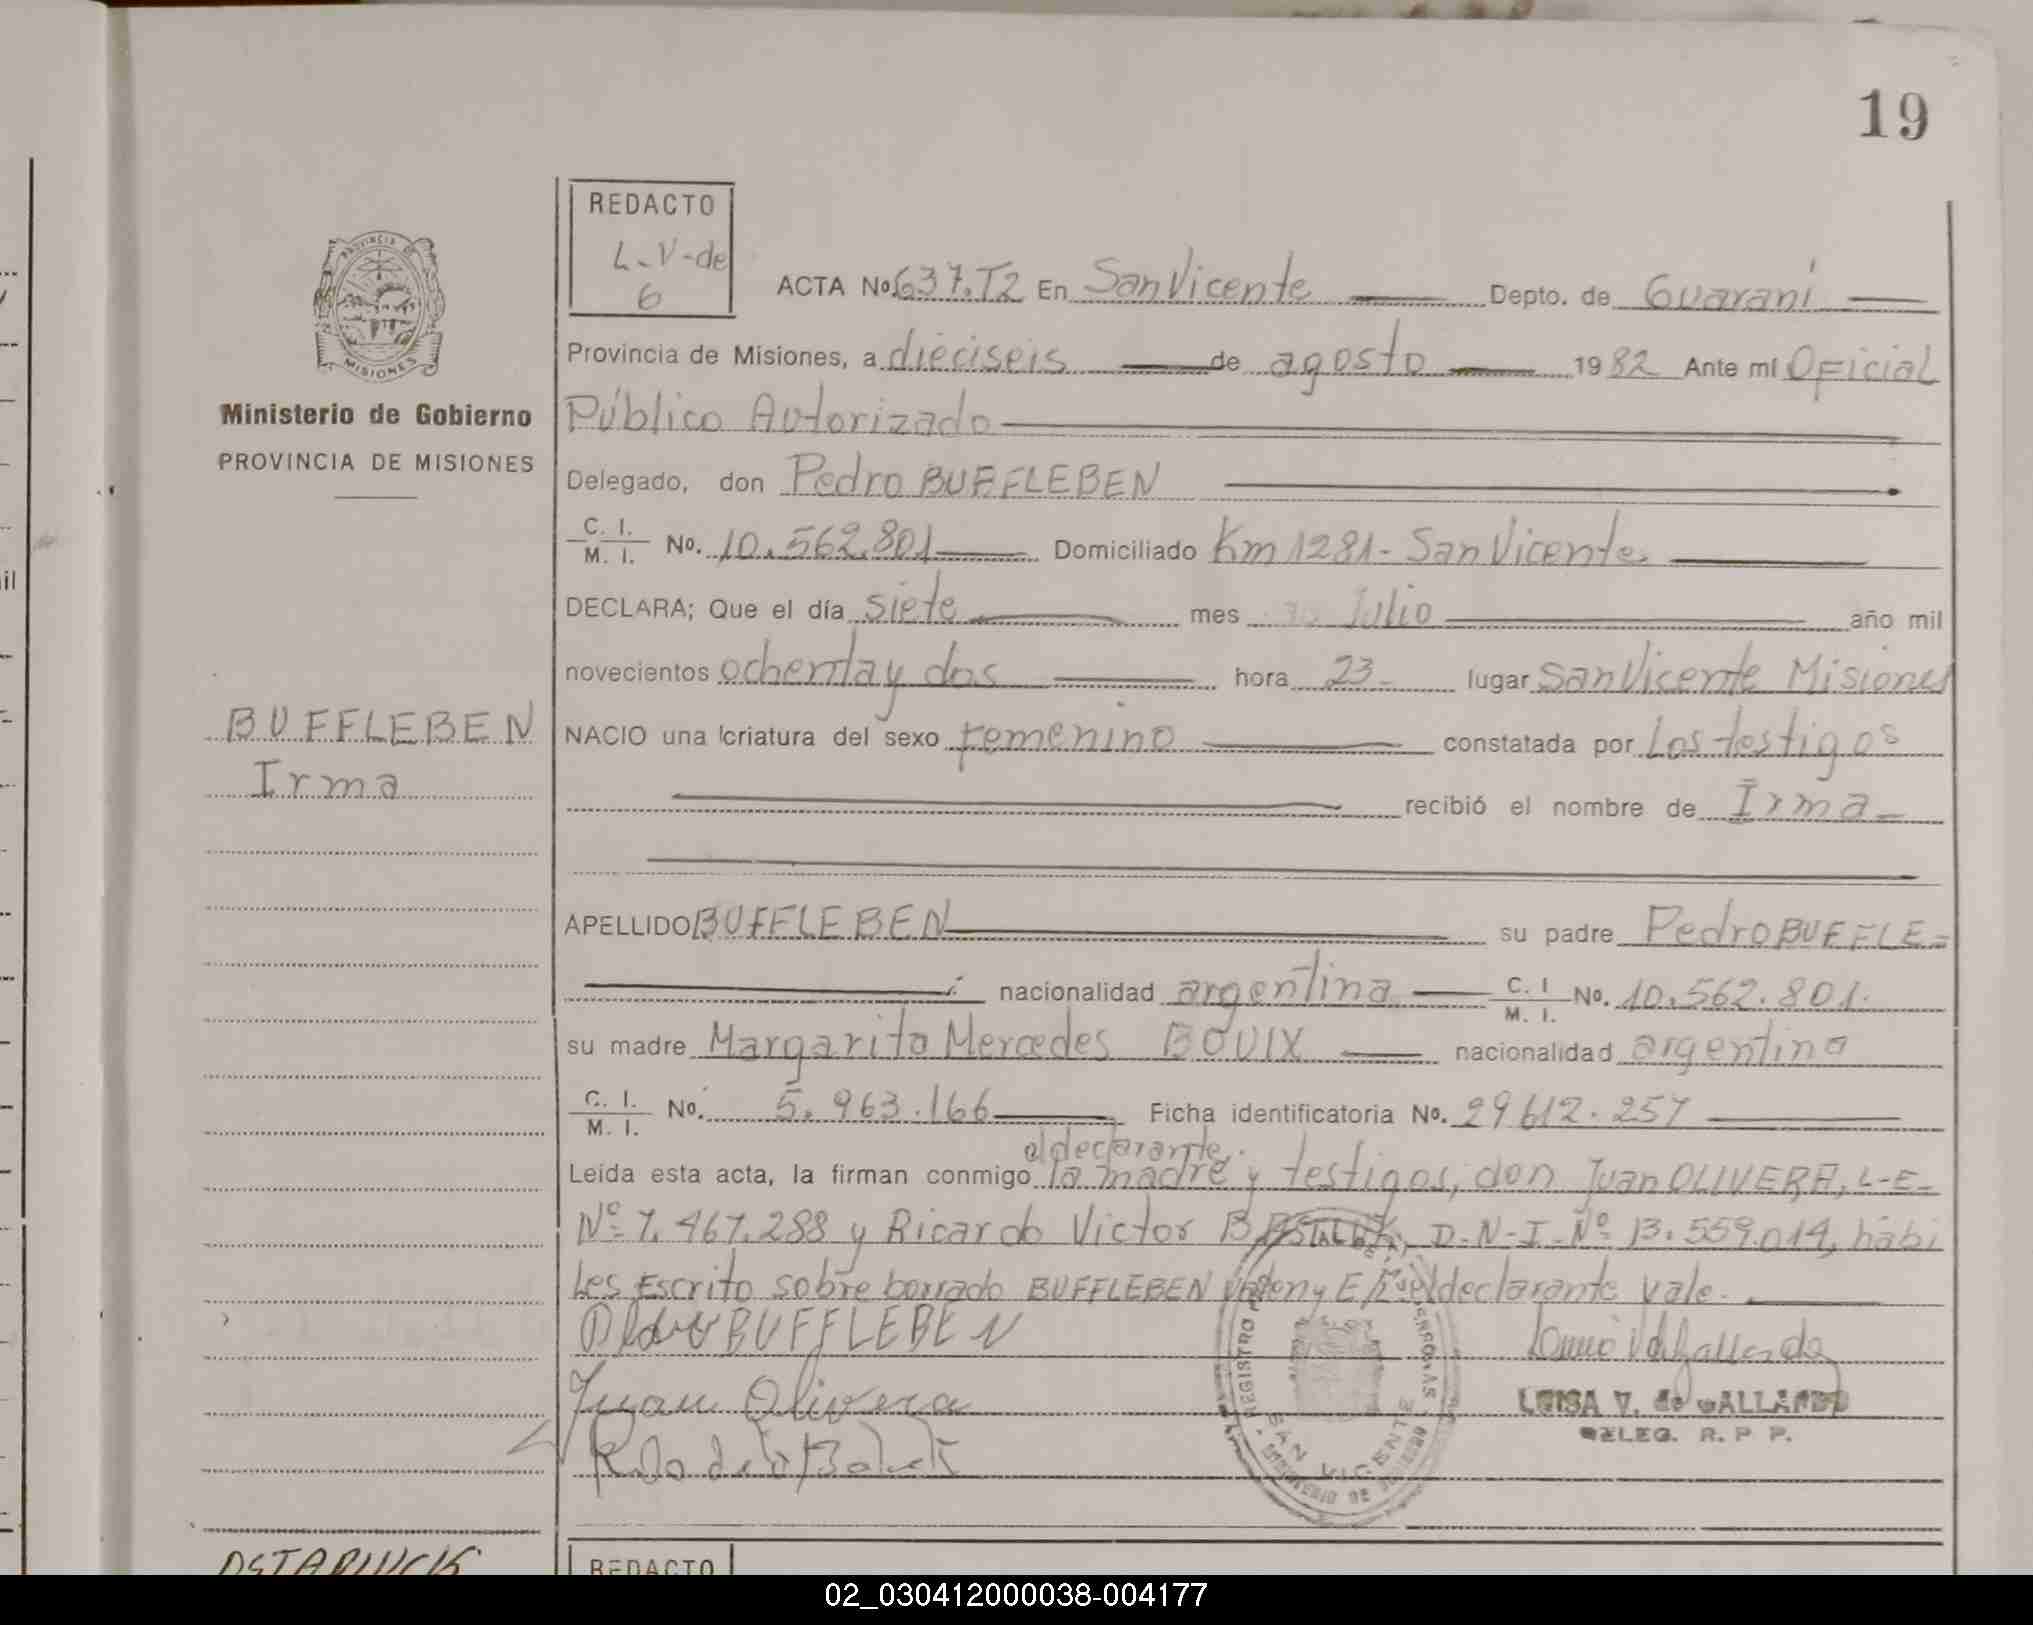 19
REDACTO
L-V-de
6
PROVINCIA DE
MISIONES
Ministerio de Gobierno
PROVINCIA DE MISIONES
BUFFLEBEN
Irma
ACTA No. 637.T2 En San Vicente Depto. de Guaraní
Provincia de Misiones, a dieciseis de agosto 1982 Ante mí Oficial
Público Autorizado
Delegado, don Pedro BUFFLEBEN
C. I. M. I. No. 10.562.801 Domiciliado Km 1281- San Vicente.
DECLARA; Que el día siete mes Julio año mil
novecientos ochenta y dos hora 23- lugar San Vicente Misiones
NACIO una criatura del sexo femenino constatada por Los testigos
recibió el nombre de Irma
APELLIDO BUFFLEBEN su padre Pedro BUFFLE=
nacionalidad argentina C. I M. I. No. 10.562.801.
su madre Margarita Mercedes BOUIX nacionalidad argentina
C. I. M. I. No. 5.963.166 Ficha identificatoria No. 29612.257
el declarante,
Leída esta acta, la firman conmigo la madre y testigos, don Juan OLIVERA, L-E-
Nº 7.467.288 y Ricardo Victor D-N-I-Nº 13.559.014, hábi
les Escrito sobre borrado BUFFLEBEN y E/ el declarante vale.
BUFFLEBEN
Juan Olivera
REGISTRO
SAN VICENTE
LUISA V. de GALLARDO
DELEG. R. P P.
REDACTO
02_030412000038-004177